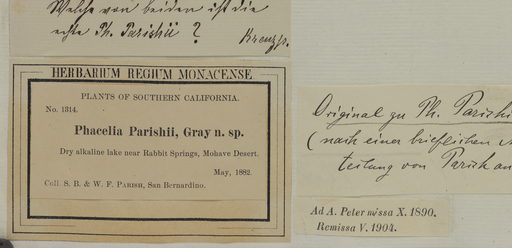 Welche von beiden ist die
echte Ph. Parishii ?
HERBARIUM REGIUM MONACENSE.
PLANTS OF SOUTHERN CALIFORNIA.
No. 1314.
Phacelia Parishii, Gray n. sp.
Dry alkaline lake near Rabbit Springs, Mohave Desert.
May, 1882.
Coll. S. B. & W. F. PARISH, San Bernardino.
Original zu Ph. Parishi
(nach einer brieflichen
teilung von Parish an
Ad A. Peter missa X. 1890.
Remissa V. 1904.